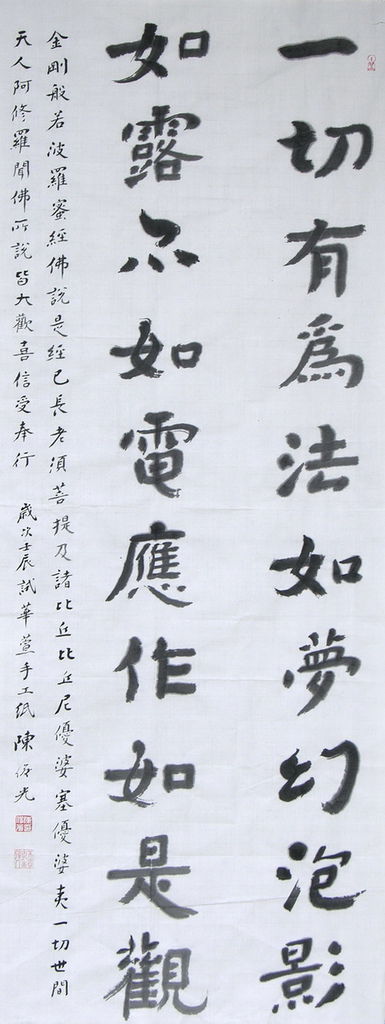 一切有爲法如夢幻泡影
如露亦如電應作如是觀
金剛般若波羅蜜經佛說是經已長老須菩提及諸比丘比丘尼優婆塞優婆夷一切世間
天人阿修羅聞佛所說皆大歡喜信受奉行 歲次壬辰試華萱手工紙陳光